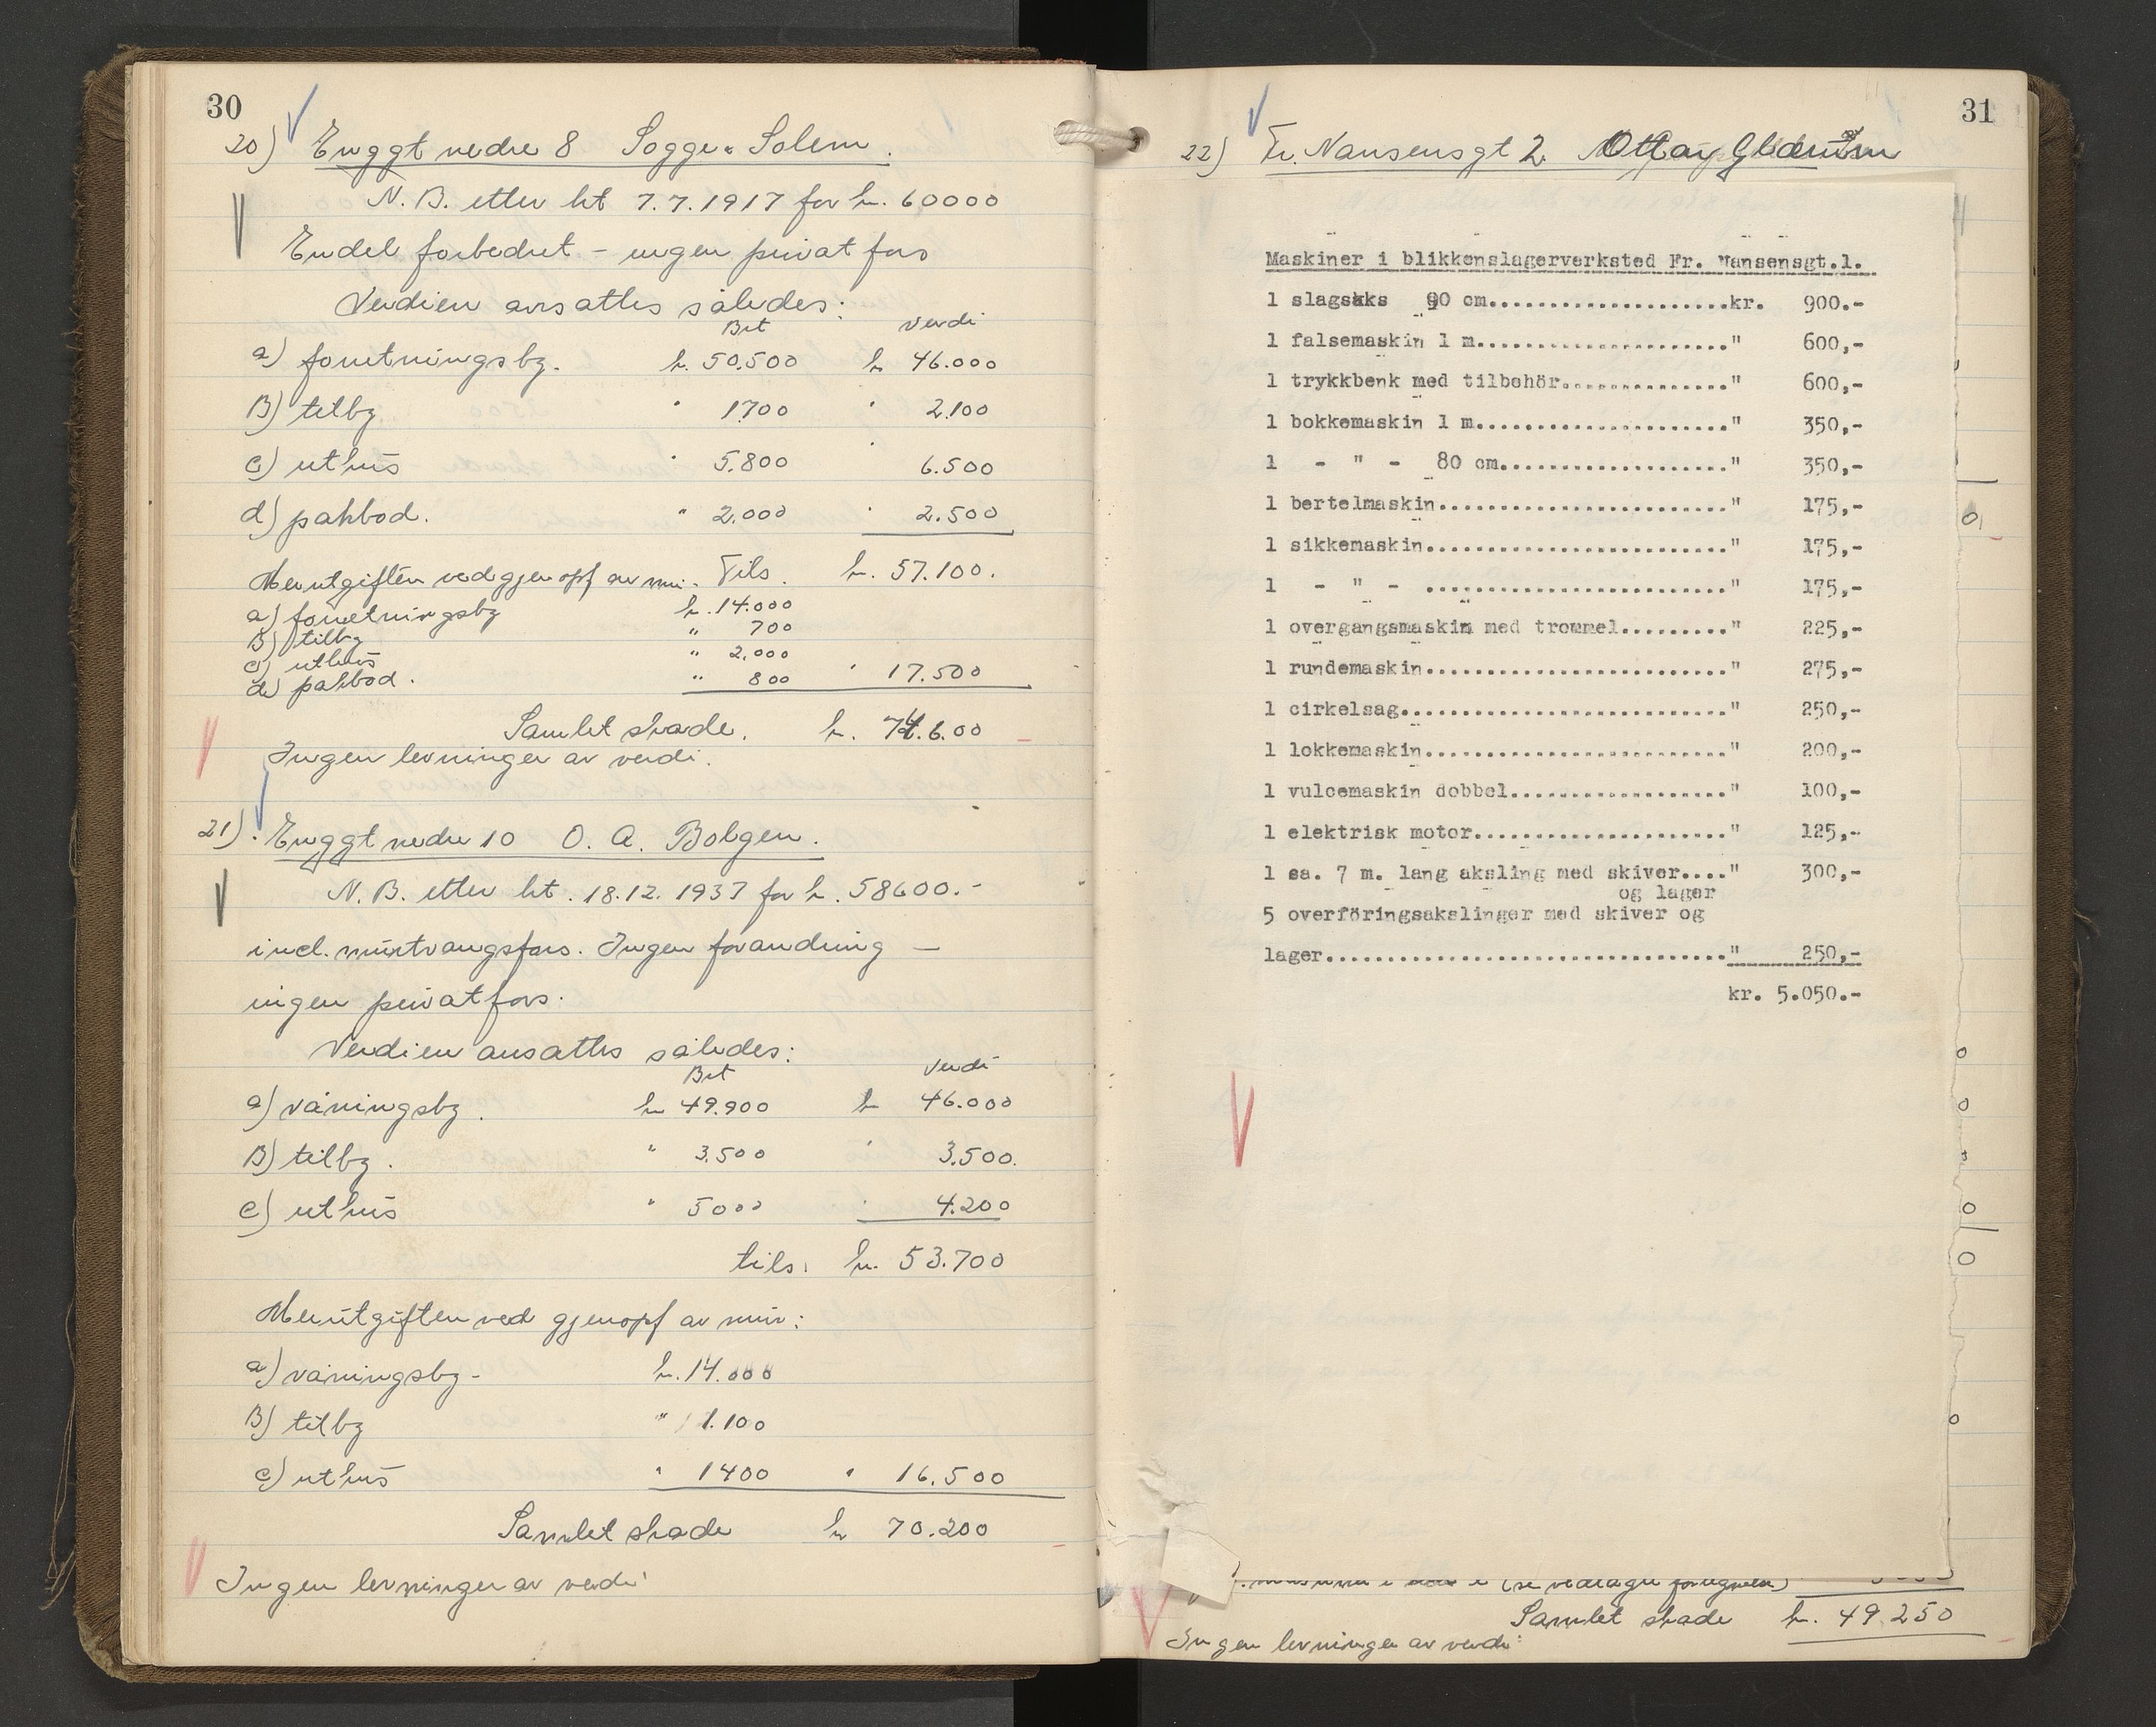 30
20) Enggt nedre 8 Sogge & Solem.
N. B. etter bt 7.7.1917 for kr. 60000
Endel forbedret - ingen privat fors
Verdien ansattes således:
Bet Verdi
a) forretningsby. kr. 50.500 kr 46.000
B) tilby " 1700 " 2.100
c) uthus " 5.800 " 6.500
d) pakbod. " 2.000 " 2.500
Merutgiften ved gjenopf av mur. Tils. kr. 57.100.
a) forretningsby kr. 14.000
B) tilby " 700
c) uthus " 2.000
d) pakbod. " 800 " 17.500
Samlet skade. kr. 74.600
Ingen levninger av verdi.
21) Enggt nedre 10 O. A. Bolgen.
N. B. etter bt. 18.12.1937 for kr. 58600.-
incl. murtvangsfors. Ingen forandring -
ingen privat fors.
Verdien ansattes således:
Bet Verdi
a) våningsby. kr 49.900 kr 46.000
B) tilby. " 3.500 " 3.500.
c) uthus " 5000 " 4.200
tils. kr. 53.700
Merutgiften ved gjenopf av mur:
a) våningsby - kr. 14.000
B) tilby " 1.100
c) uthus " 1400 " 16.500
Samlet skade kr 70.200
Ingen levninger av verdi
31
22) Fr. Nansensgt 2. Ottar
Maskiner i blikkenslagerverksted Fr. Nansensgt.1.
1 slagsaks 90 cm....................kr. 900.-
1 falsemaskin 1 m....................." 600,-
1 trykkbenk med tilbehör.............." 600,-
1 bokkemaskin 1 m....................." 350,-
1 - " - 80 cm..................." 350,-
1 bertelmaskin........................" 175,-
1 sikkemaskin........................." 175,-
1 - " - ........................." 175,-
1 overgangsmaskin med trommel........." 225,-
1 rundemaskin........................." 275,-
1 cirkelsag..........................." 250,-
1 lokkemaskin........................." 200,-
1 vulcemaskin dobbel.................." 100,-
1 elektrisk motor....................." 125,-
1 ca. 7 m. lang aksling med skiver...." 300,-
og lager
5 overföringsakslinger med skiver og
lager................................." 250,-
kr. 5.050.-
(se vedlagte fortegnelse)
Samlet skade kr. 49.250
Ingen levninger av verdi